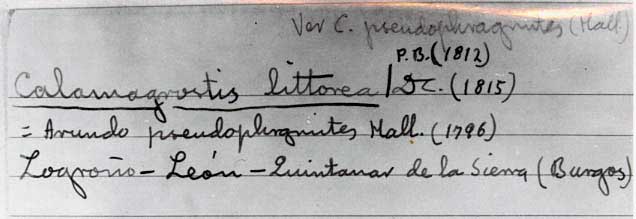 Ver C. pseudophragmites (Hall)
P.B. (1812)
Calamagrostis littorea / DC. (1815)
= Arundo pseudophragmites Hall. (1796)
Logroño - León - Quintanar de la Sierra (Burgos)